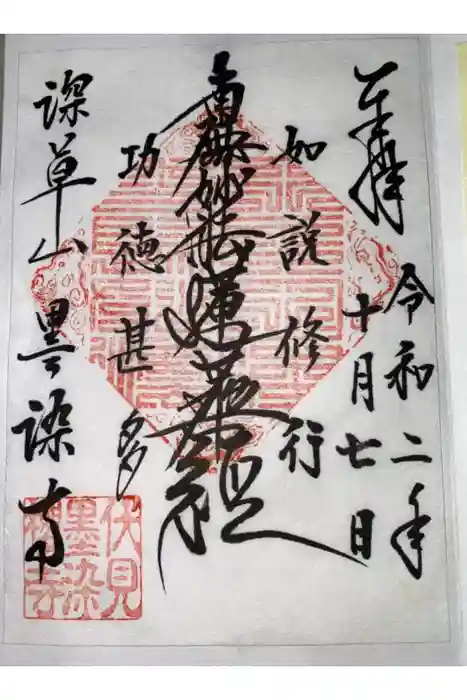 奉拝
令和二年
十月七日
如説修行
南無妙法蓮華経
功徳甚多
深草山 墨染寺
伏見
墨染
櫻寺